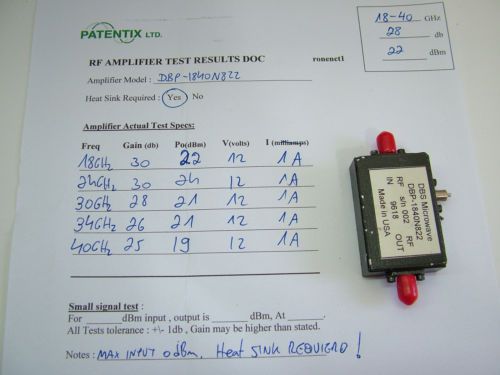 PATENTIX LTD.
18-40 GHz
28 db
22 dBm
RF AMPLIFIER TEST RESULTS DOC ronenct1
Amplifier Model : DBP-1840N822
Heat Sink Required : Yes No
Amplifier Actual Test Specs:
Freq Gain (db) Po(dBm) V(volts) I (milliamps)
18GHz 30 22 12 1A
24GHz 30 24 12 1A
30GHz 28 21 12 1A
34GHz 26 21 12 1A
40GHz 25 19 12 1A
Small signal test :
For ________dBm input , output is ________dBm, At ________.
All Tests tolerance : +\- 1db , Gain may be higher than stated.
Notes : MAX INPUT 0dBm, Heat SINK REQUIERD !
DBS Microwave
DBP-1840N822
RF s/n 002 RF
IN 9618 OUT
Made in USA